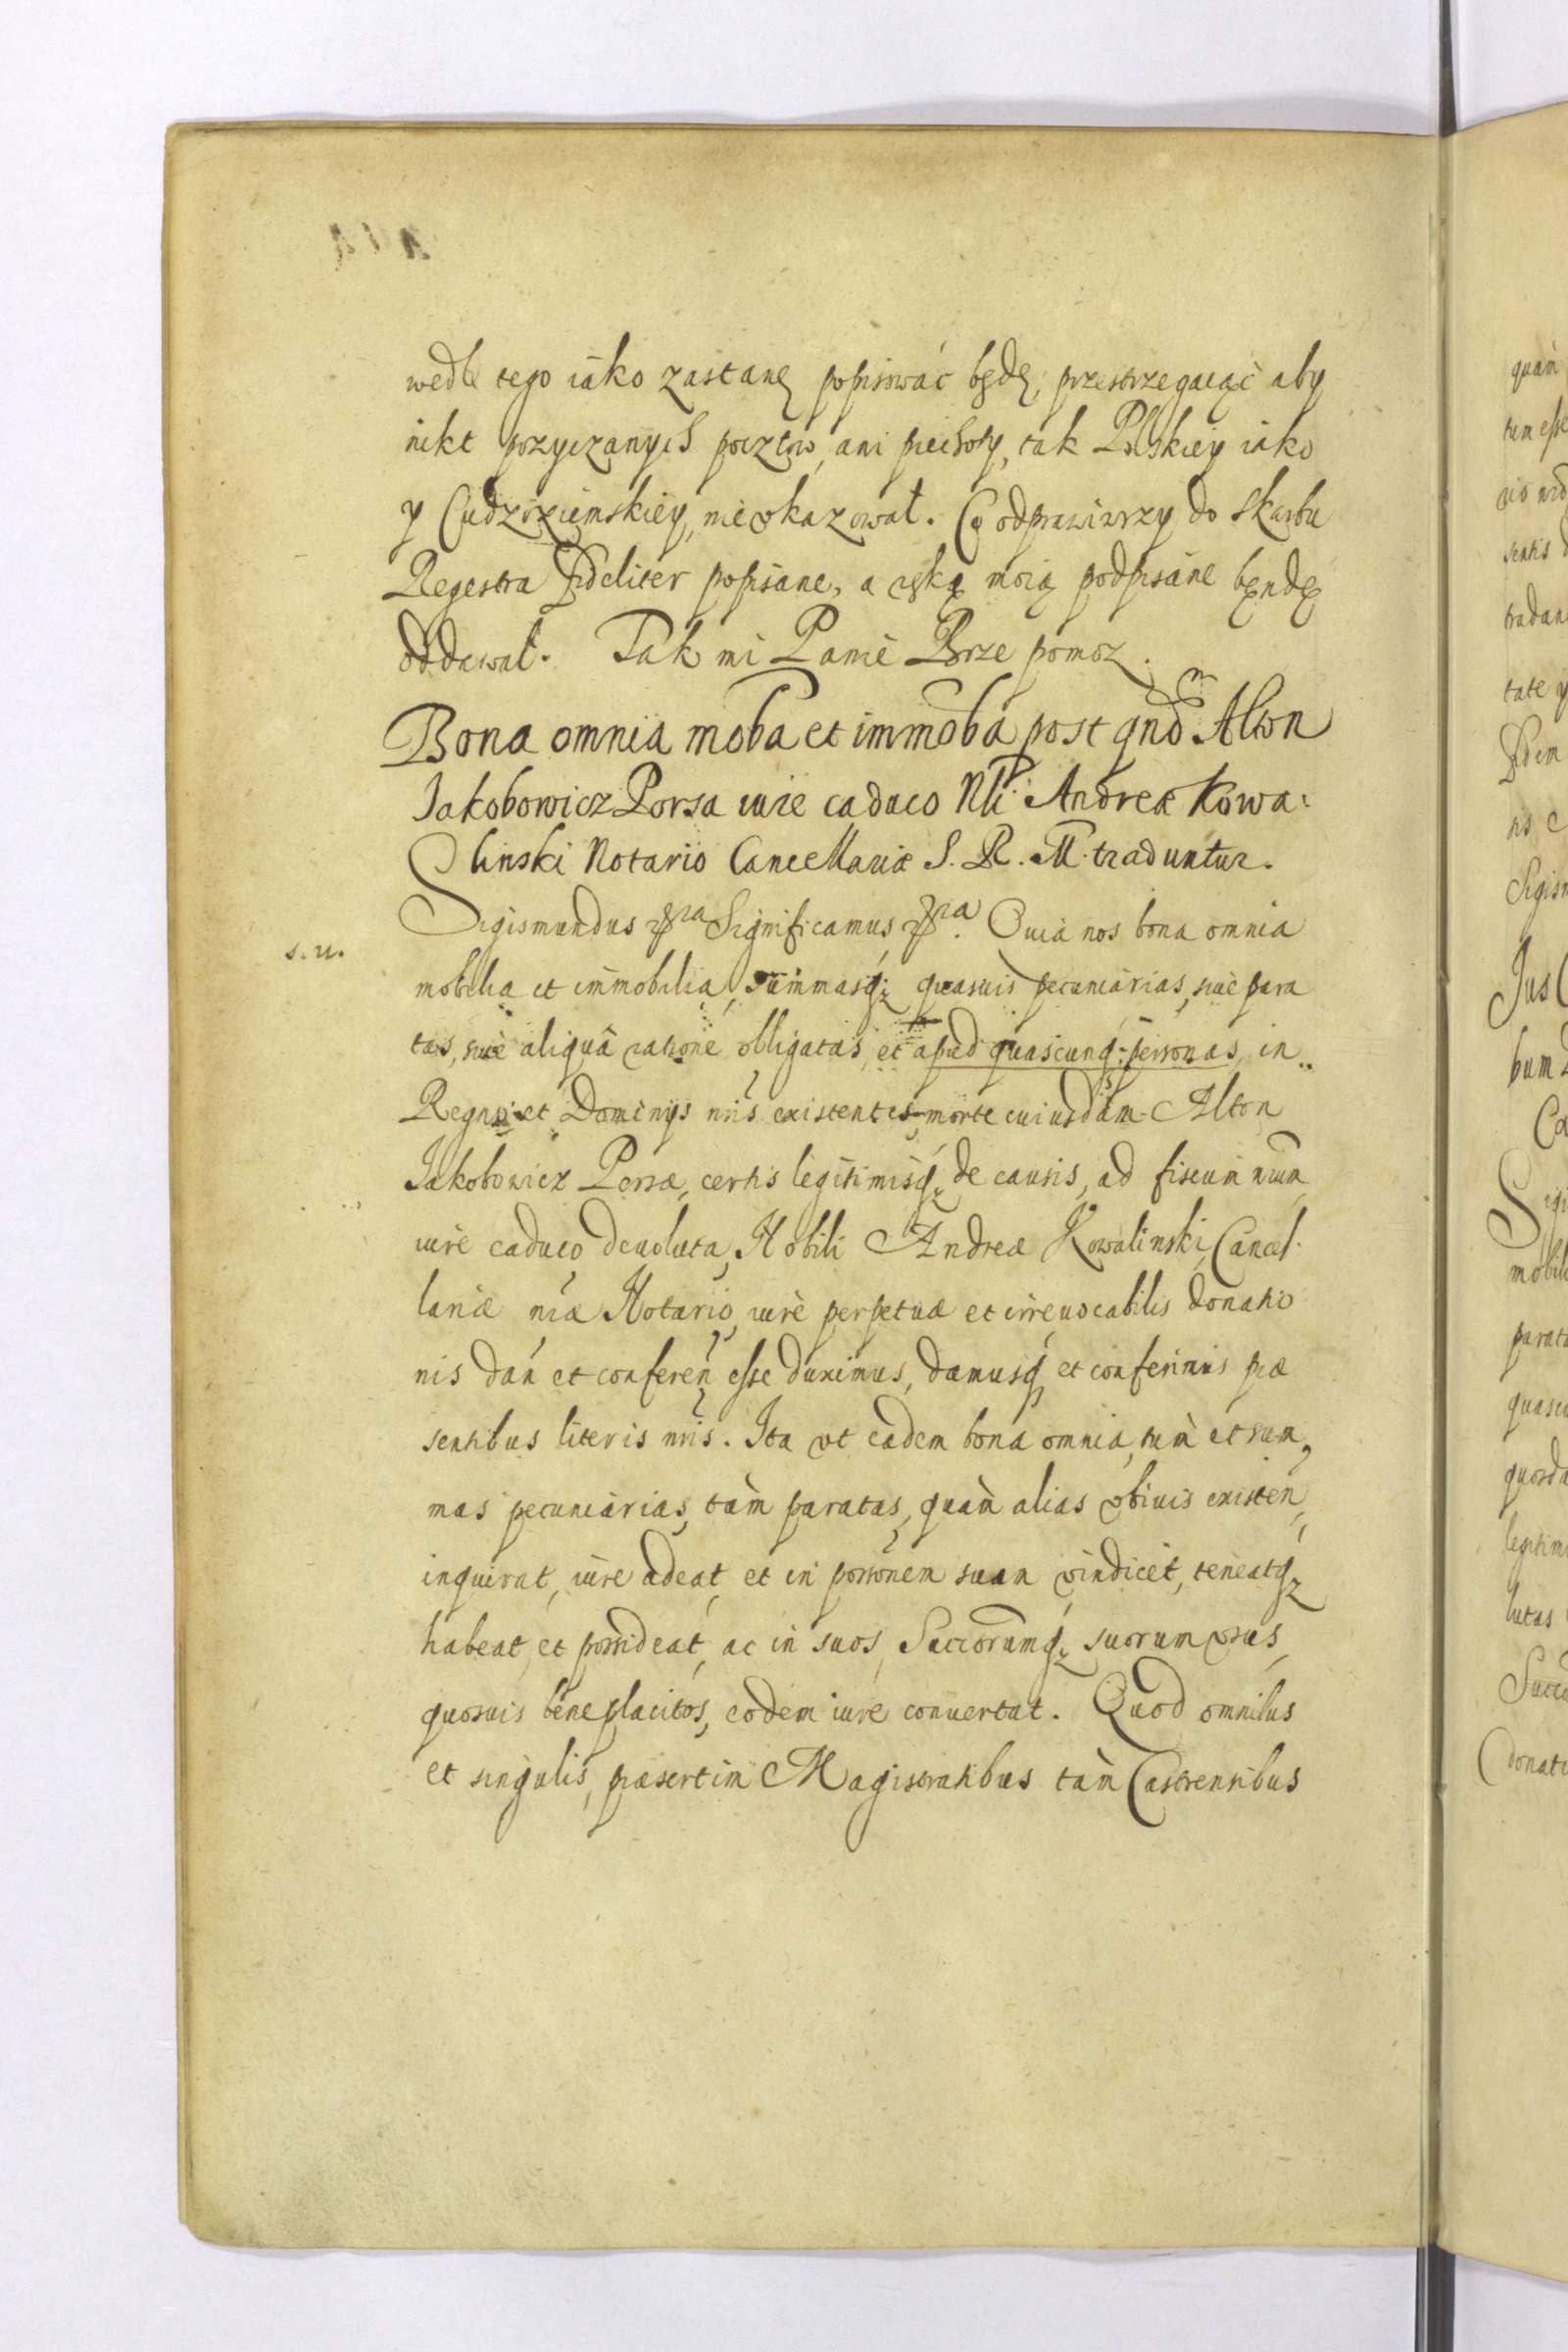 wedle tego iako zastanę popisować będę, przestrzegaiąc aby
nikt pozyczanych pocztow, ani piechoty, tak Polskiey iako
y Cudzoziemskiey, nie vkazował. Co odprawiwszy do Skarbu
Regestra fideliter popisane, a ręką moią podpisane bęndę
oddawał. Tak mi Panie Boze pomoz.
Bona omnia moba et immoba post qndm Alton
Jakobowicz Persa iure caduco Nli Andreæ Kowa:
linski Notario Cancellariæ S. R. M. traduntur.
Sigismundus &ra Significamus &ra. Quia nos bona omnia
s. u.
mobilia et immobilia, summasq; quasuis pecuniarias, siue para
tas, siue aliquâ ratione obligatas, et apud quascunq; personas, in
Regno et Dominijs nris existentes, morte cuiusdam Alton
Jakobowicz Persæ, certis legitimisq; de causis, ad fiscum nrum
iure caduco deuoluta, Nobili Andreæ Kowalinski, Cancel-
lariæ nræ Notario, iure perpetuæ et irreuocabilis donatio
nis dan et conferen esse duximus, damusq; et conferimus præ
sentibus literis nris. Ita vt eadem bona omnia, tum et sum
mas pecuniarias, tàm paratas, quàm alias vbiuis existen,
inquirat, iure adeat, et in possionem suam vindicet, teneatq;
habeat, et possideat, ac in suos, Succorumq; suorum vsus,
quosuis beneplacitos, eodem iure conuertat. Quod omnibus
et singulis, præsertim Magistratibus tàm Castrensibus